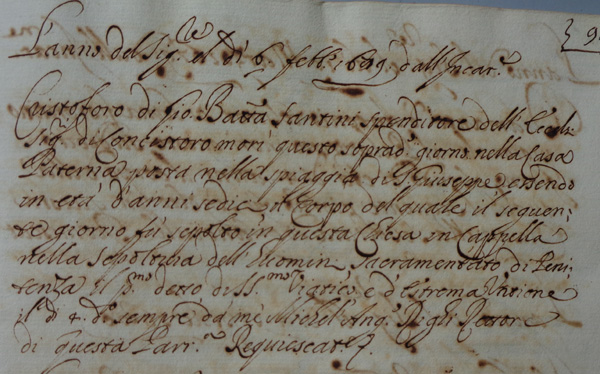 } 9
L'anno del Sig.re el dì 6. feb.o 1689. dall'Incar.e
Custoforo di Gio. Batta Santini spenditore dell'Eccels:
Sig.ri di Concistoro morì questo soprad.o giorno nella Casa
Paterna posta nella spiaggia di S. Giuseppe essendo
in età d'anni sedici il Corpo del quale il seguen:
te giorno fù sepolto in questa Chiesa in Cappella
nella sepoltura dell'Huomini Sacramentato di Peni
tenza il p.mo detto di SS.mo Viatico e d'estrema Untione
il dì 4. d.o sempre da me Michel'Ang.o Rettore
di questa Parr.a Requiescat.